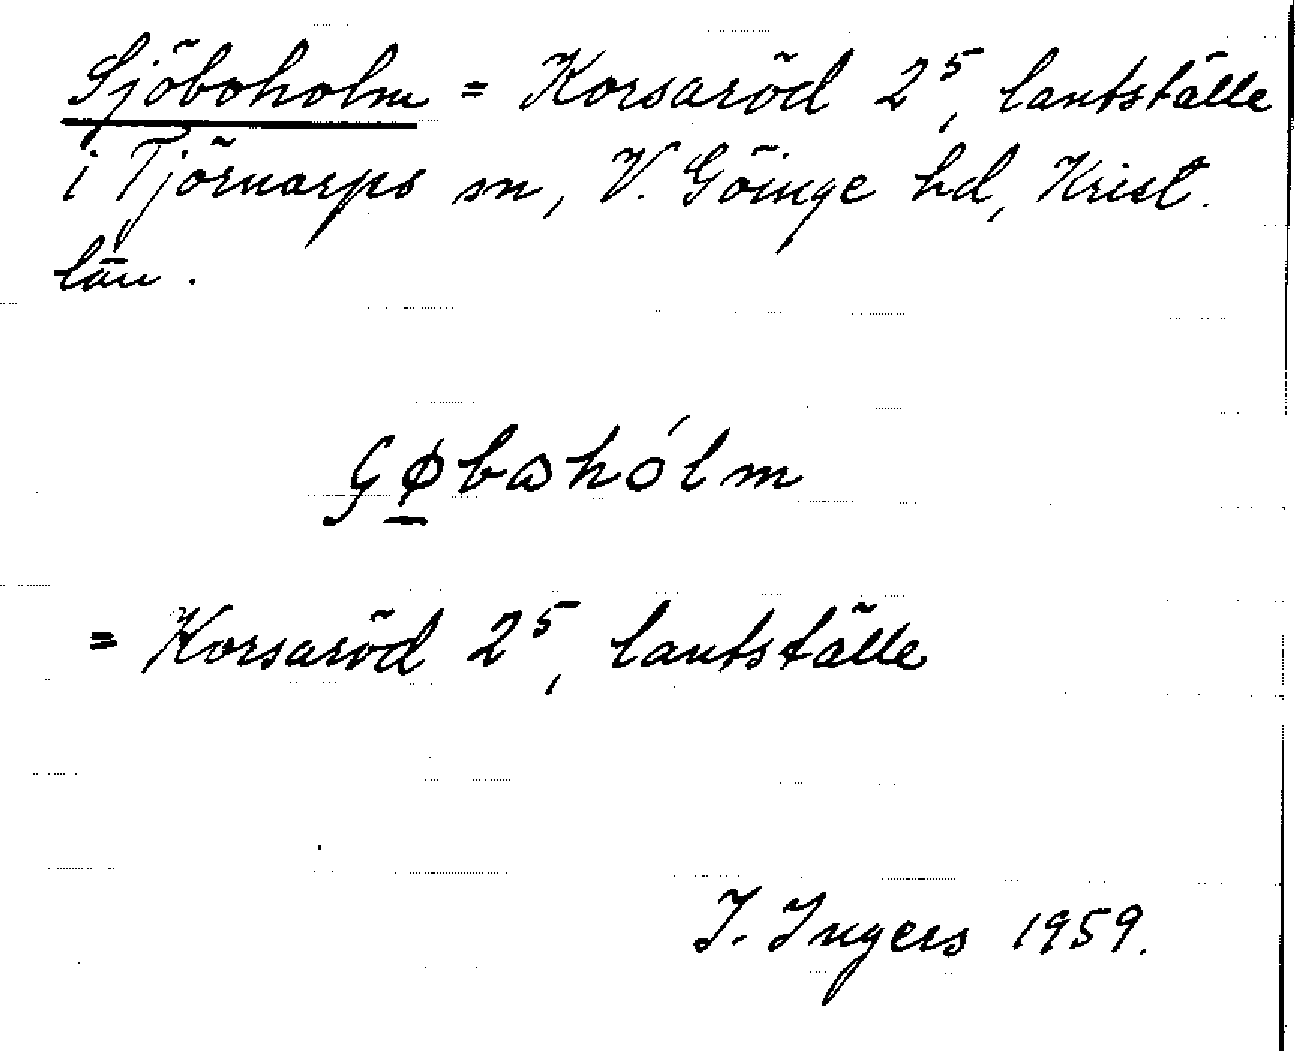 Sjöboholm = Korsaröd 2⁵, lantställe
i Tjörnarps sn, V. Göinge hd, Krist.
län.
= Korsaröd 2⁵, lantställe
I. Ingers 1959.